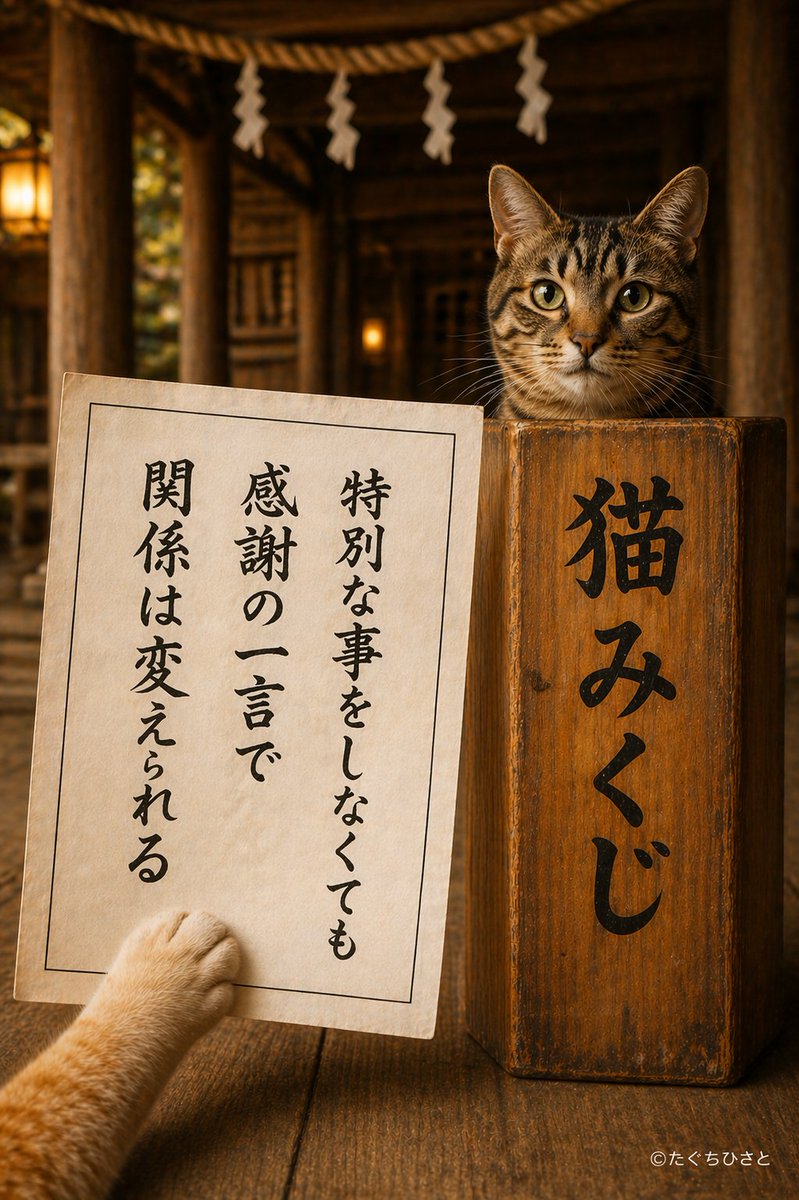 特別な事をしなくても
感謝の一言で
関係は変えられる
猫みくじ
©たぐちひさと